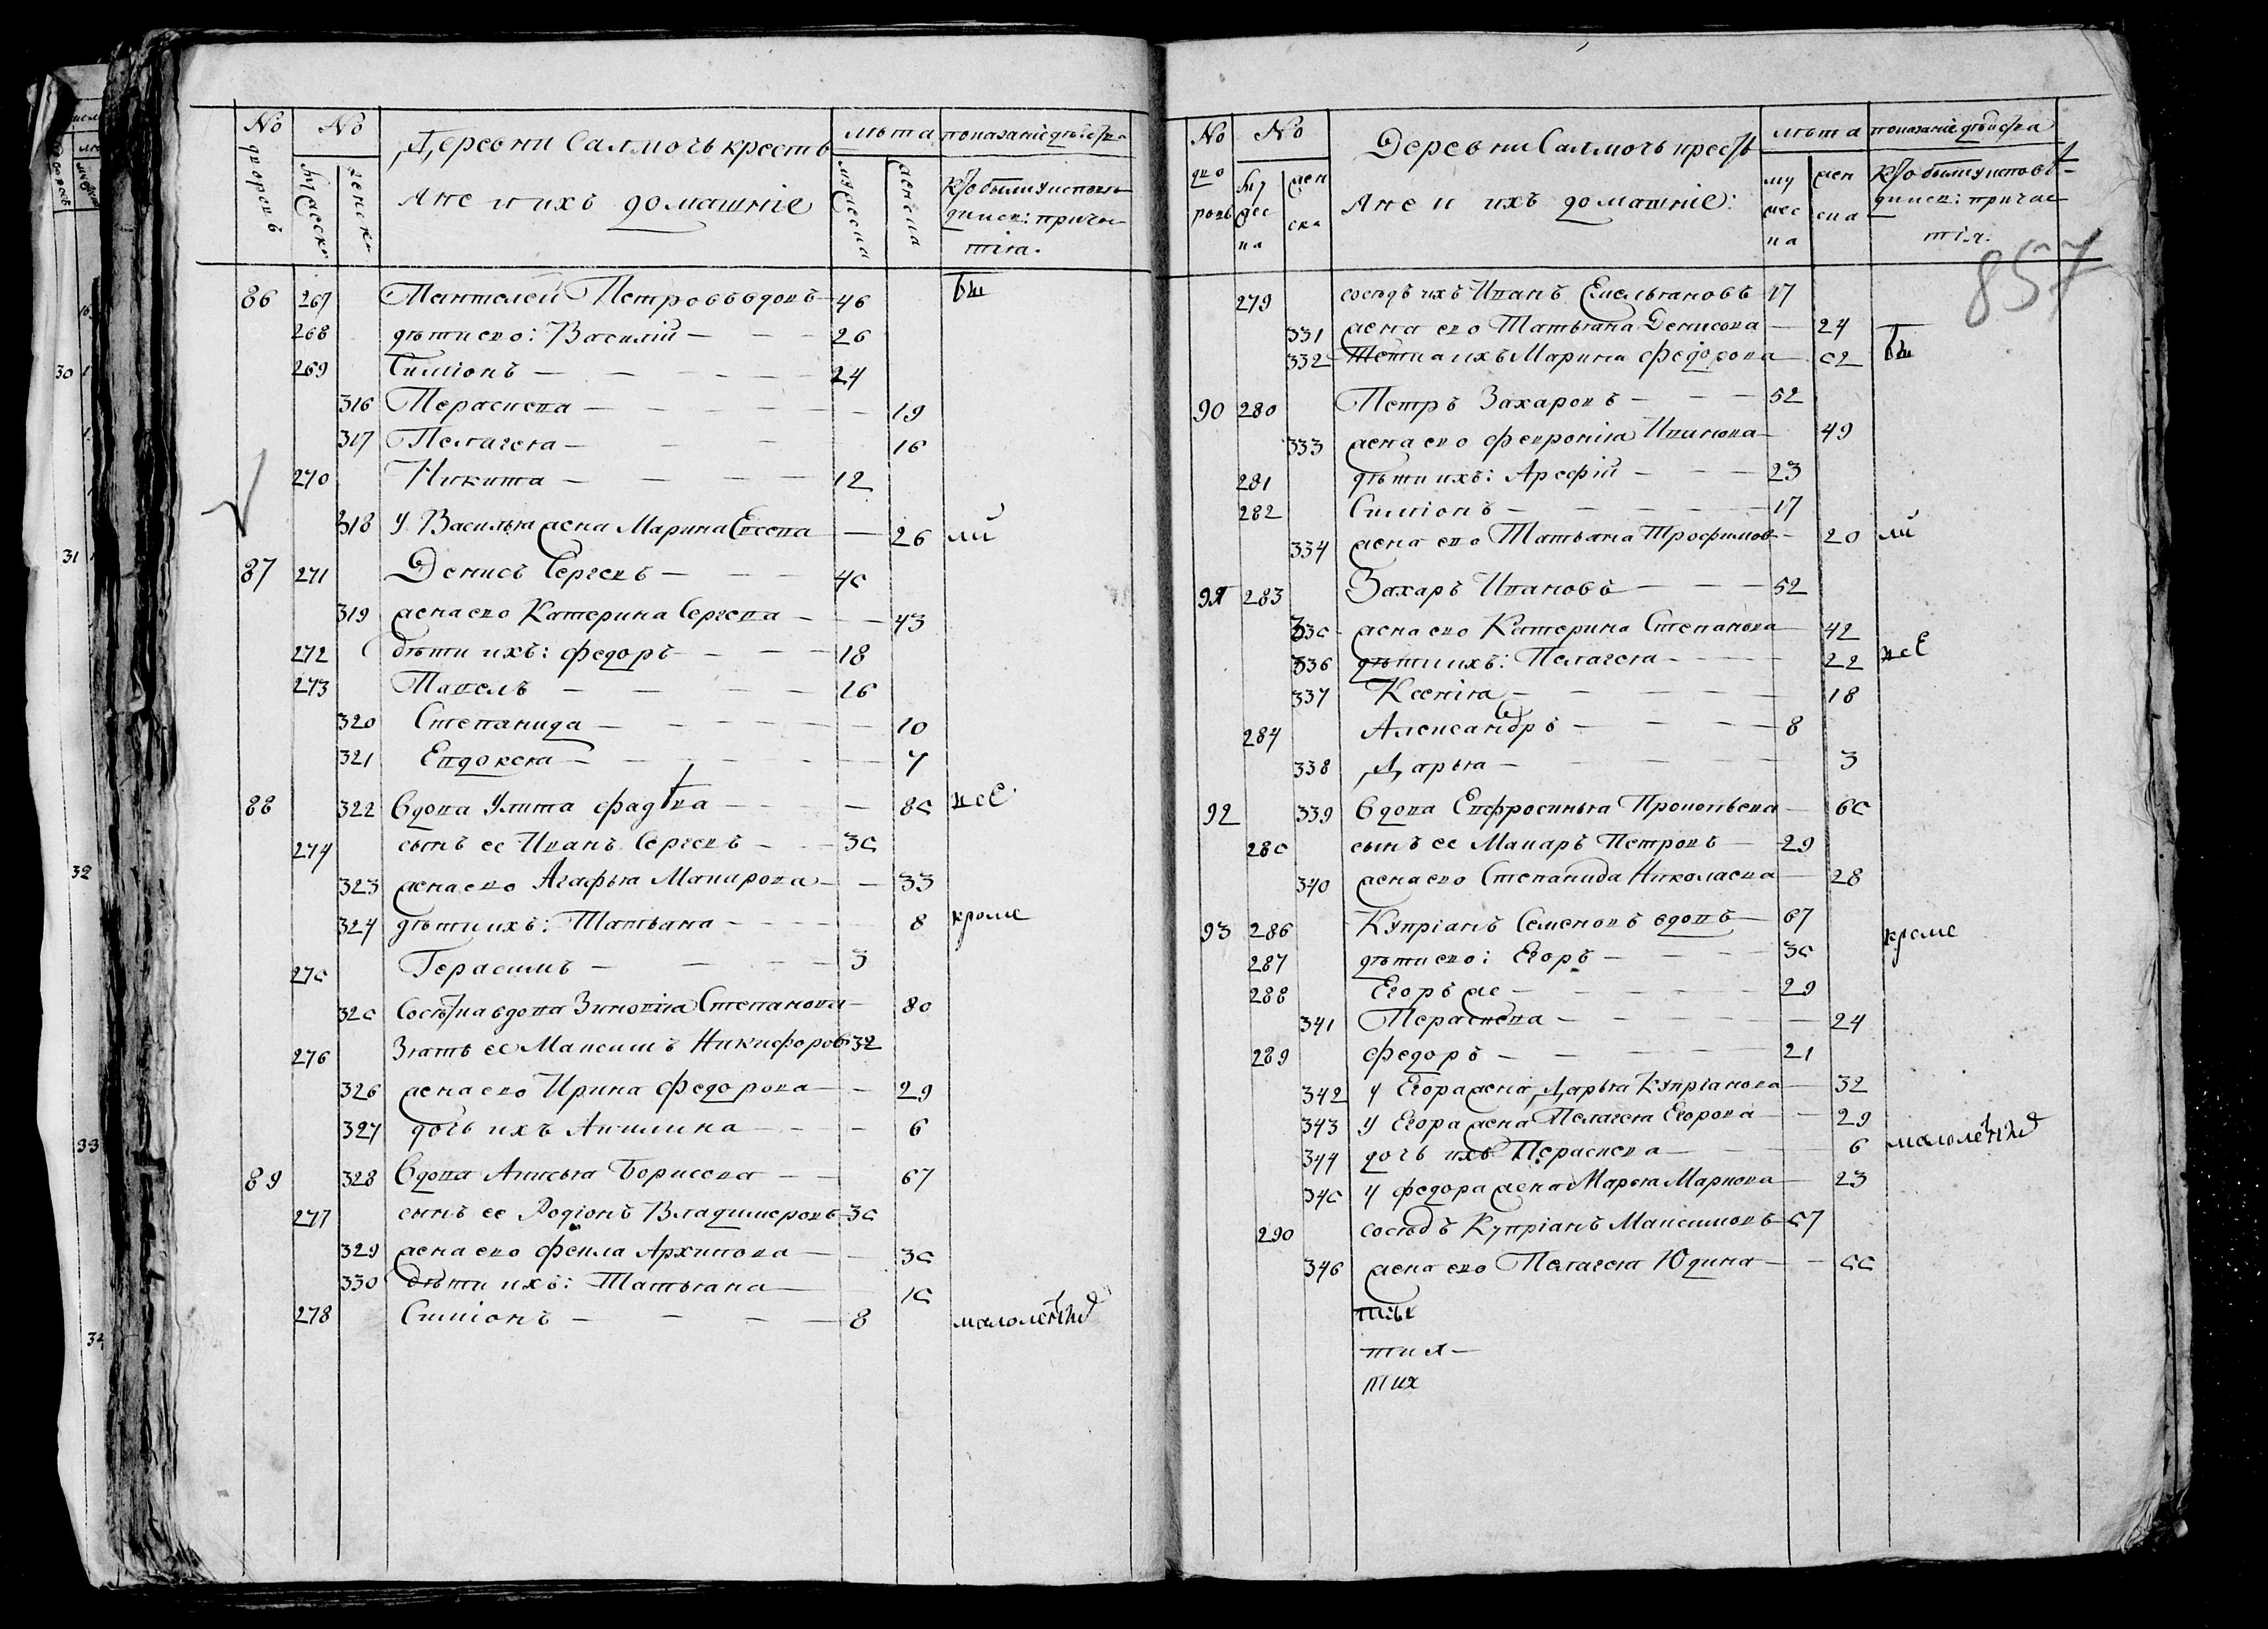 No
No
Деревни Салмочь крестья
лѣта
показаніе дѣйства
дворовъ
мужеск.
женска
яне и ихъ домашніе
мужеска
женска
кто были у исповѣ
ди и св: прича
тія.
86 267 Пантелей Петровъ вдовъ 46 Бы
268 дѣти ево: Василій 26
269 Симіонъ 24
316 Параскева 19
317 Пелагея 16
270 Никита 12
318 У Василья жена Марина Евсева 26 ли
87 271 Денисъ Сергеевъ 45
319 жена ево Катерина Сергева 43
272 дѣти ихъ: Федоръ 18
273 Павелъ 16
320 Степанида 10
321 Евдокея 7
88 322 Вдова Улита Фадѣева 85 всѣ
274 сынъ ее Иванъ Сергевъ 35
323 жена ево Агафья Макарова 33
324 дѣти ихъ: Татьяна 8 кроме
275 Герасимъ 3
325 Сосѣдка вдова Зиновіа Степанова 80
276 Зять ее Максимъ Никифоровъ 32
326 жена ево Ирина Федорова 29
327 дочь ихъ Акилина 6
89 328 Вдова Анисья Борисова 67
277 сынъ ее Родіонъ Владимеровъ 35
329 жена ево Фекла Архипова 35
330 дѣти ихъ: Татьяна 15
278 Симіонъ 8 малолѣтныхъ
No
No
Деревни Салмочь крестья
лѣта
показаніе дѣйства
дво
ровъ
му
жес
ка
жен
ска
яне и ихъ домашніе:
му
жес
ка
жен
ска
кто были у исповѣ-
ди и св: причас
тія.
857
279 сосѣдъ ихъ Иванъ Емельяновъ 17
331 жена ево Татьяна Денисова 24
332 Тетка ихъ Марина Федорова 52 Бы
90 280 Петръ Захаровъ 52
333 жена ево Февронія Иванова 49
281 дѣти ихъ: Арефій 23
282 Симіонъ 17
334 жена ево Татьяна Трофимов 20 ли
91 283 Захаръ Ивановъ 52
335 жена ево Катерина Степанова 42
336 дѣти ихъ: Пелагея 22 всѣ
337 Ксенія 18
284 Александръ 8
338 Дарья 3
92 339 Вдова Евфросинья Прокопьева 65
285 сынъ ее Макаръ Петровъ 29
340 жена ево Степанида Николаева 28
93 286 Купріанъ Семеновъ вдовъ 67 кроме
287 дѣти ево: Егоръ 35
288 Егоръ же 29
341 Параскева 24
289 Федоръ 21
342 У Егора жена Дарья Купріанова 32
343 У Егора жена Пелагея Егорова 29
344 дочь ихъ Параскева 6 малолѣтныхъ
345 У Федора жена Марья Маркова 23
290 сосѣдъ Купріанъ Максимовъ 57
346 жена ево Пелагея Юдина 55
тих